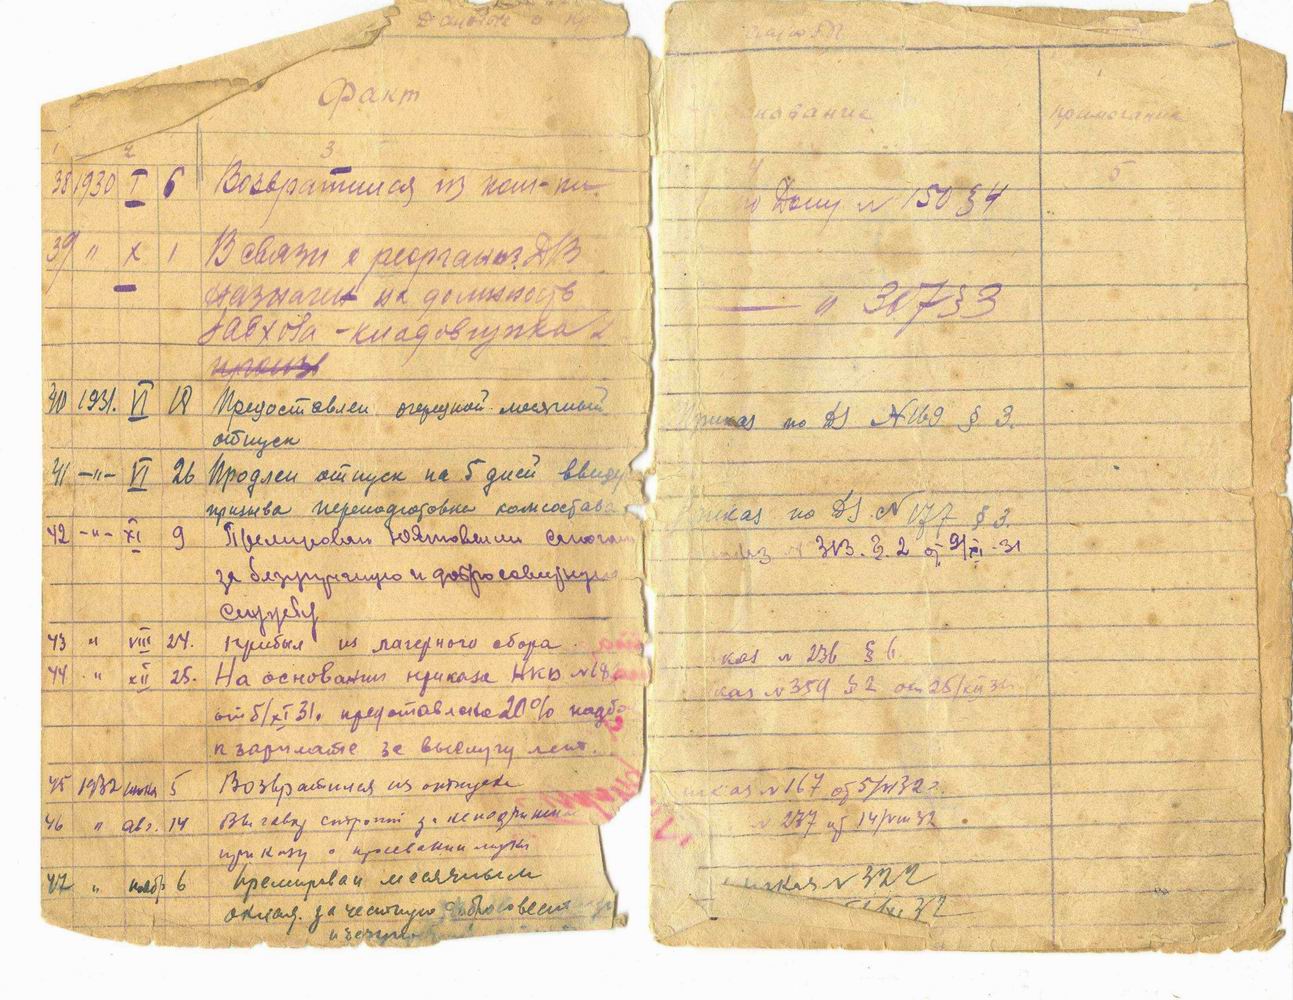 Факт
основание
примечание
2 3 4 5
38 1930 I 6 Возвратился из ком-ки
по Дому № 150 § 4
39 " X 1 В связи с реорганиз. ДПЗ
назначен на должность
завхоза - кладовщика
— " 307 § 3
40 1931. VI 18 Предоставлен очередной месячный
отпуск
Приказ по ДЗ № 169 § 3.
41 —"— VI 26 Продлен отпуск на 5 дней ввиду
призыва переподготовки комсостава
Приказ по ДЗ № 177 § 3.
42 —"— XI 9 Премирован сапогами
за безупречную и добросовестную
службу
313. § 2 от 9/XI-31
43 " VIII 24. Прибыл из лагерного сбора
каз № 236 § 6.
44 " XII 25. На основании приказа №
от 5/XI 31. предоставлена 20% надб
к зарплате за выслугу лет.
каз № 359 § 2 от 25/XII 31
45 1932 июня 5 Возвратился из отпуска
иказ № 167 от 5/VI 32 г.
46 " авг. 14 Выговор за
приказу о просеивании муки
№ 237 от 14/VIII 32
47 " нояб 6 Премирован месячным
оклад. за честную добросовест
иказ № 322
XI 32